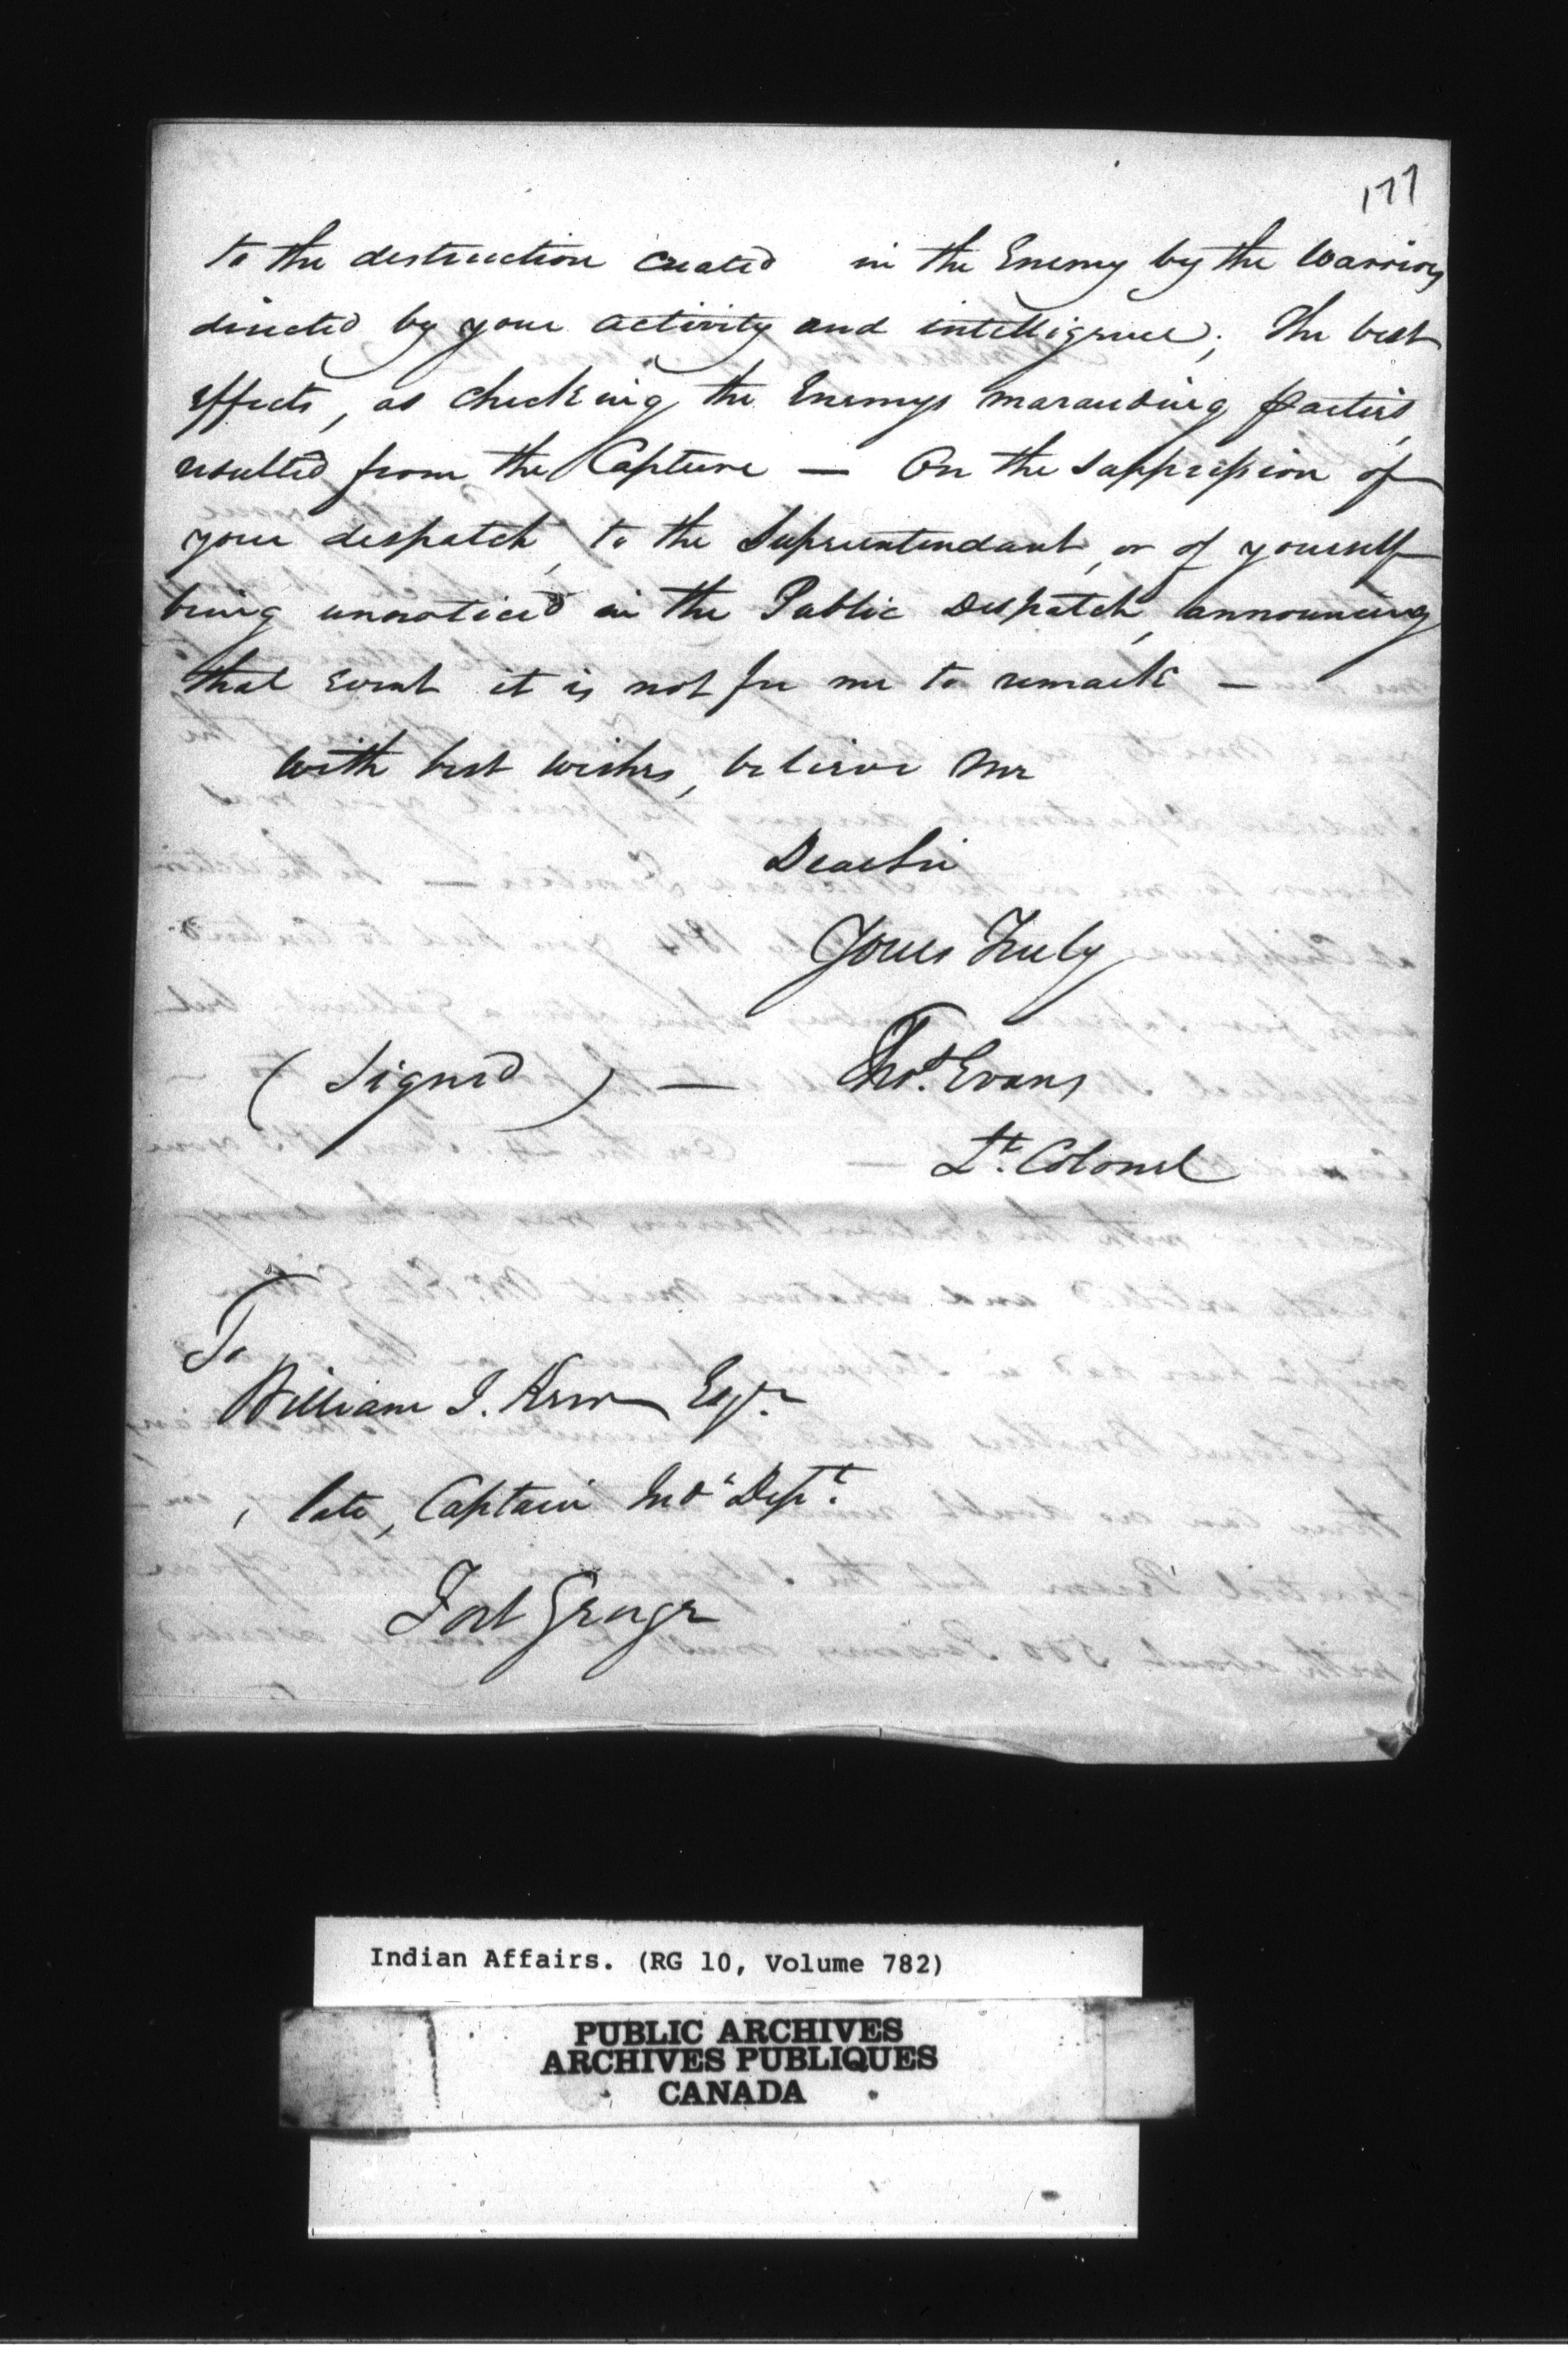 177
to the destruction created in the Enemy by the Warriors
directed by your activity and intelligence; The best
effects, as checking the Enemys marauding parties,
resulted from the Capture — On the suppression of
your despatch, to the Superintendant, or of yourself
being unnoticed in the Public Despatch, announcing
that event it is not for me to remark —
With best wishes, believe me
Dear Sir
Yours Truly
(Signed) — Thos. Evans
Lt. Colonel
To
William J. Kerr Esqr.
late, Captain Ind. Dept.
Fort George
Indian Affairs. (RG 10, Volume 782)
PUBLIC ARCHIVES
ARCHIVES PUBLIQUES
CANADA